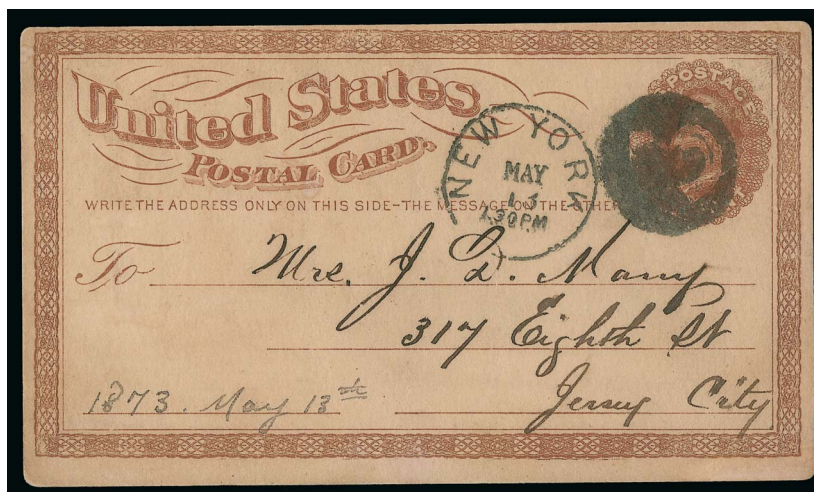 United States
POSTAL CARD.
POSTAGE
NEW YORK
MAY
13
1.30 PM
WRITE THE ADDRESS ONLY ON THIS SIDE-THE MESSAGE ON THE OTHER
To Mrs. J. D. Many
317 Eighth St
Jersey City
1873. May 13th